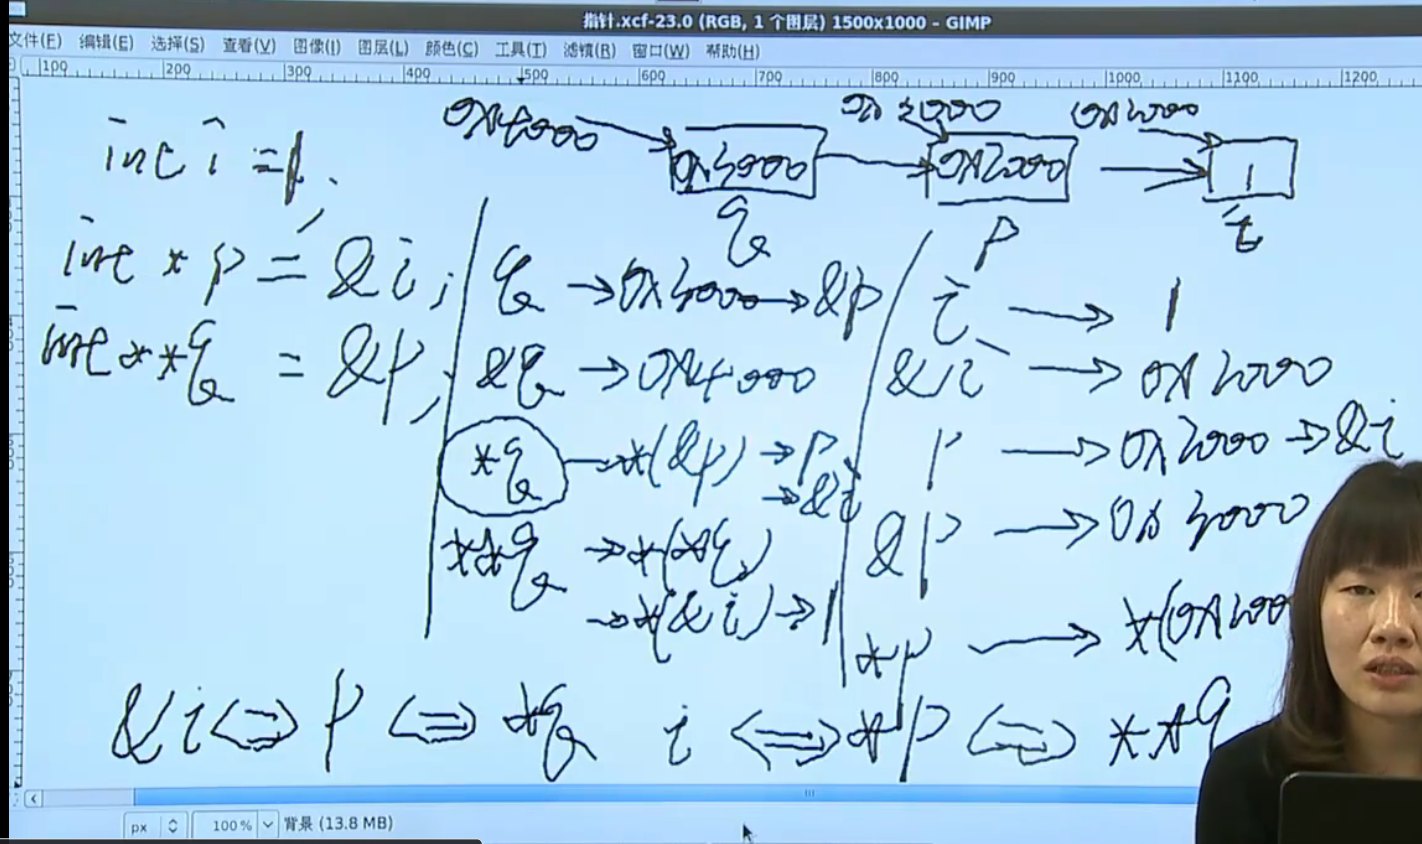 指针.xcf-23.0 (RGB, 1 个图层) 1500x1000 – GIMP
文件(F) 编辑(E) 选择(S) 查看(V) 图像(I) 图层(L) 颜色(C) 工具(T) 滤镜(R) 窗口(W) 帮助(H)
100 200 300 400 500 600 700 800 900 1000 1100 1200
0x4000 0x3000 0x2000
0x3000 0x2000 1
q p i
int i = 1;
int *p = &i;
int **q = &p;
q → 0x3000 → &p
&q → 0x4000
*q → *(&p) → p
→ &i
**q → *(*q)
→ *(&i) → 1
i → 1
&i → 0x2000
p → 0x2000 → &i
&p → 0x3000
*p → *(0x200
&i ⇔ p ⇔ *q i ⇔ *p ⇔ **q
px 100% 背景 (13.8 MB)